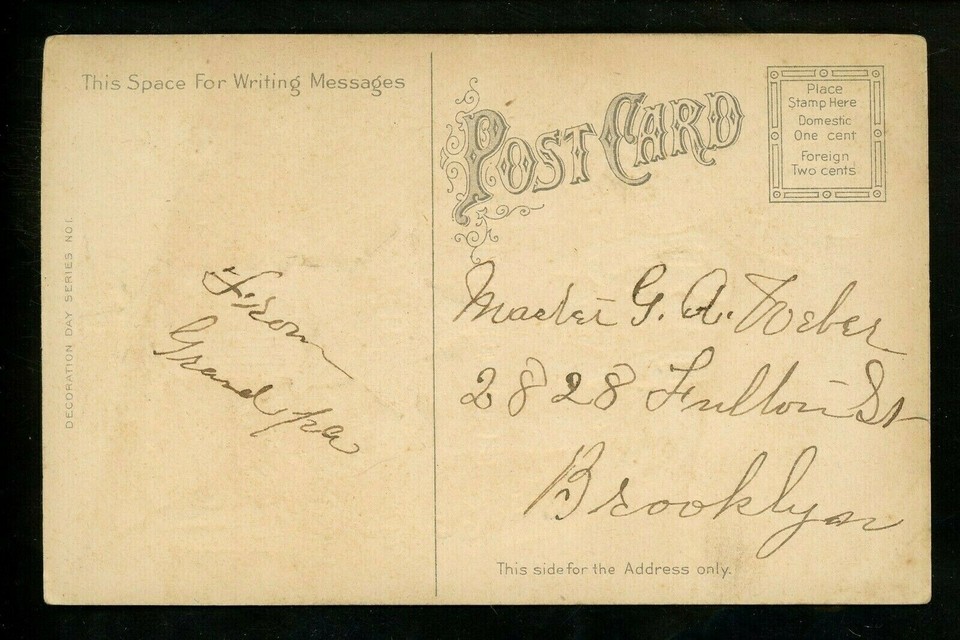 This Space For Writing Messages
POST CARD
Place
Stamp Here
Domestic
One cent
Foreign
Two cents
DECORATION DAY SERIES NO 1.
From
Grand pa
Master G. A. Weber
2828 Fulton St
Brooklyn
This side for the Address only.